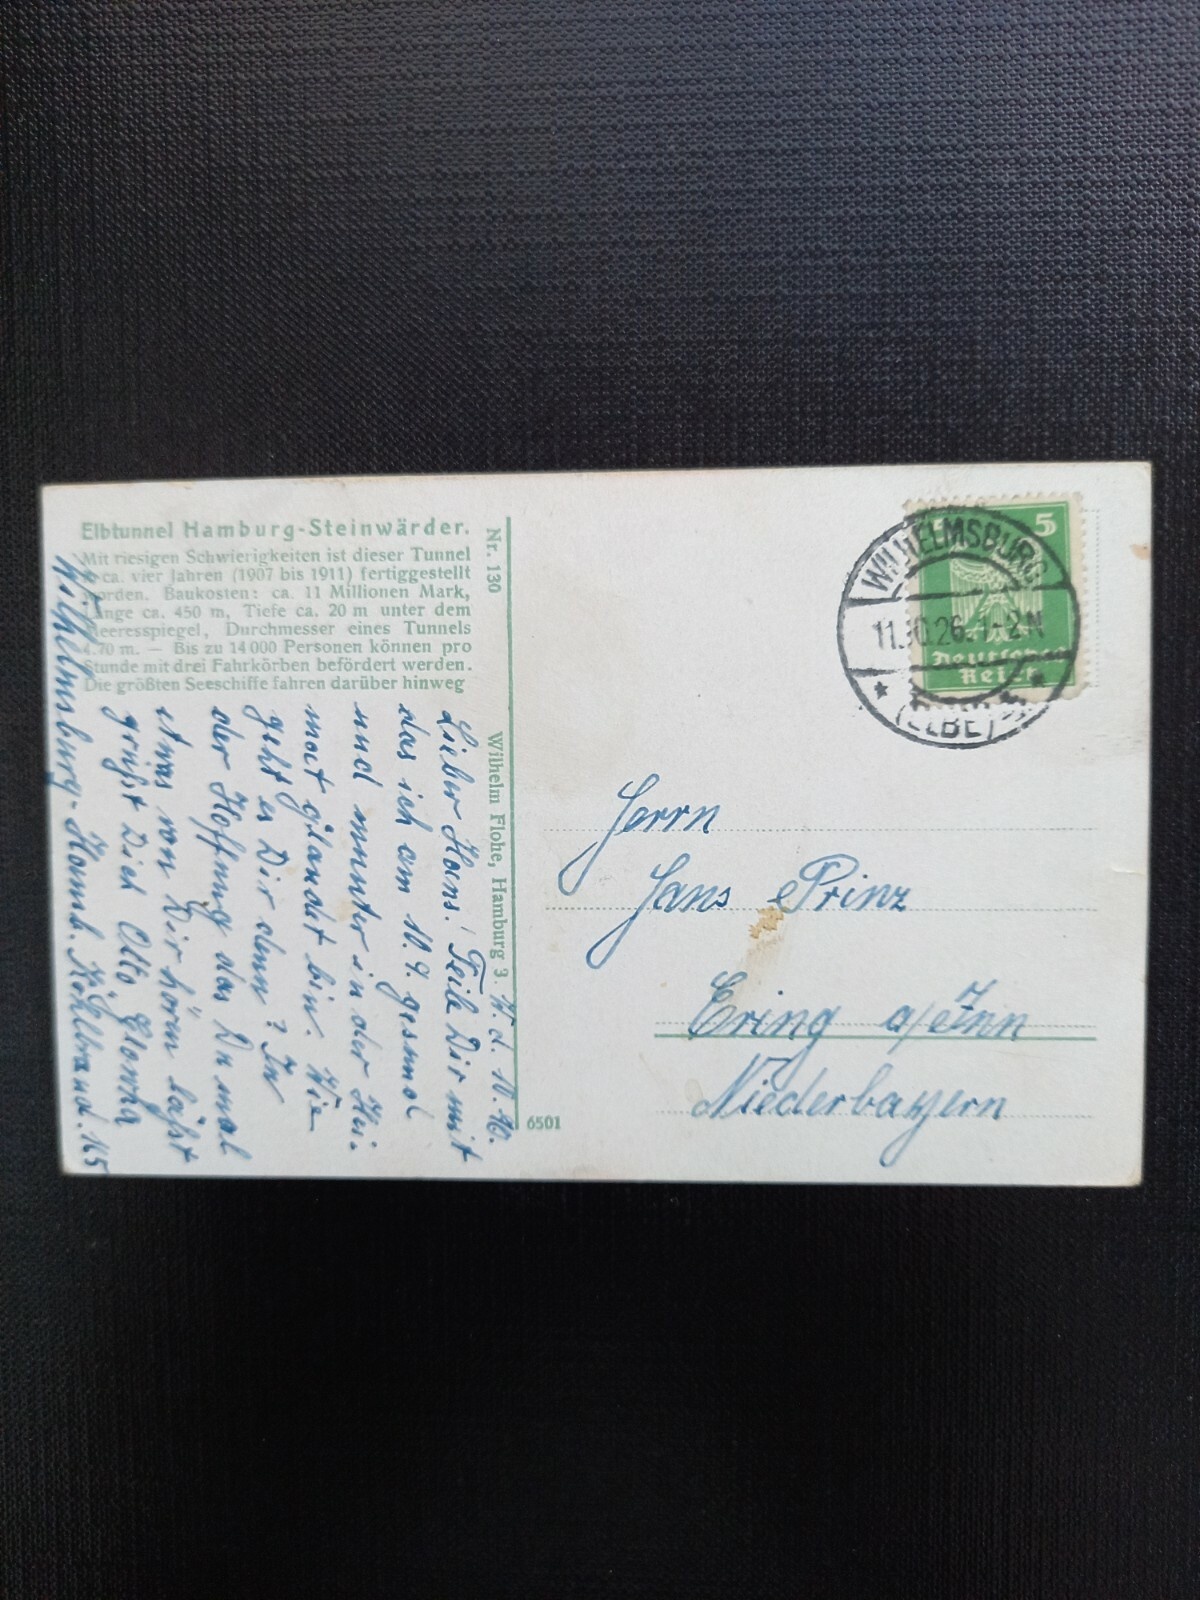 Elbtunnel Hamburg-Steinwärder.
Mit riesigen Schwierigkeiten ist dieser Tunnel
ca. vier Jahren (1907 bis 1911) fertiggestellt
worden. Baukosten: ca. 11 Millionen Mark,
Länge ca. 450 m, Tiefe ca. 20 m unter dem
Meeresspiegel, Durchmesser eines Tunnels
4.70 m. — Bis zu 14000 Personen können pro
Stunde mit drei Fahrkörben befördert werden.
Die größten Seeschiffe fahren darüber hinweg
Nr. 130
Wilhelm Flohe, Hamburg 3.
6501
W. d. 10. 10.
Lieber Hans! Teile Dir mit
das ich am 10.9. gesund
und munter in der Hei-
mat gelandet bin. Wie
geht es Dir denn? In
der Hoffnung das Du mal
etwas von Dir hören läßt
grüßt Dich Otto
Wilhelmsburg-Hamb. Köhlbrand. 165
5
Deutsches
Reich
WILHELMSBURG
11.10.26. 1-2 N
* (ELBE) *
Herrn
Hans Prinz
Ering a/Inn
Niederbayern